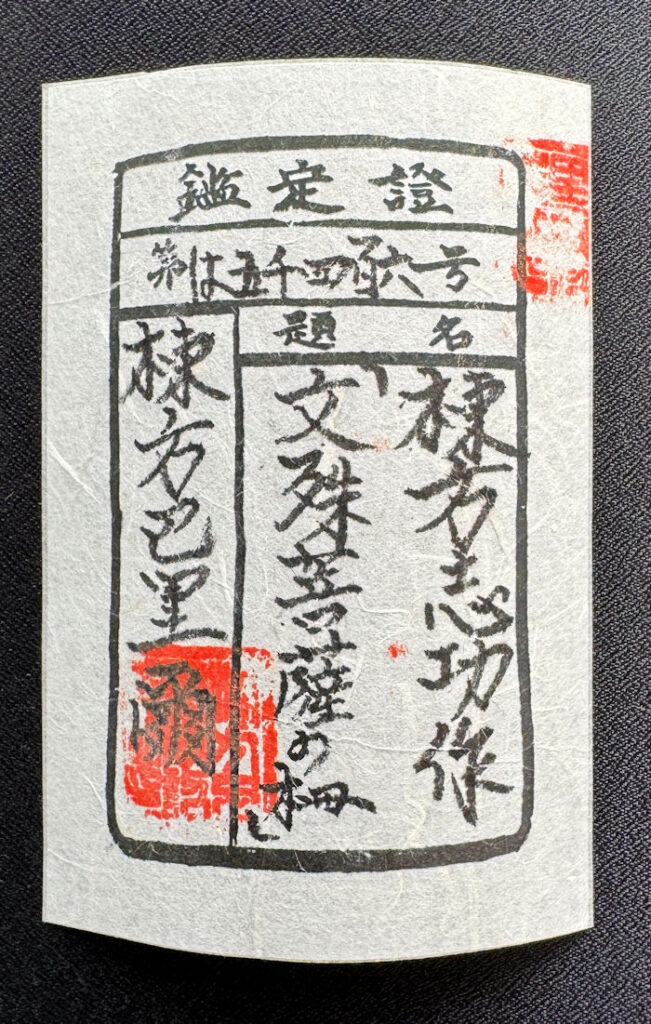 鑑定證
第は五千四百六号
題名
棟方志功作
「文殊菩薩の柵」
棟方巴里爾